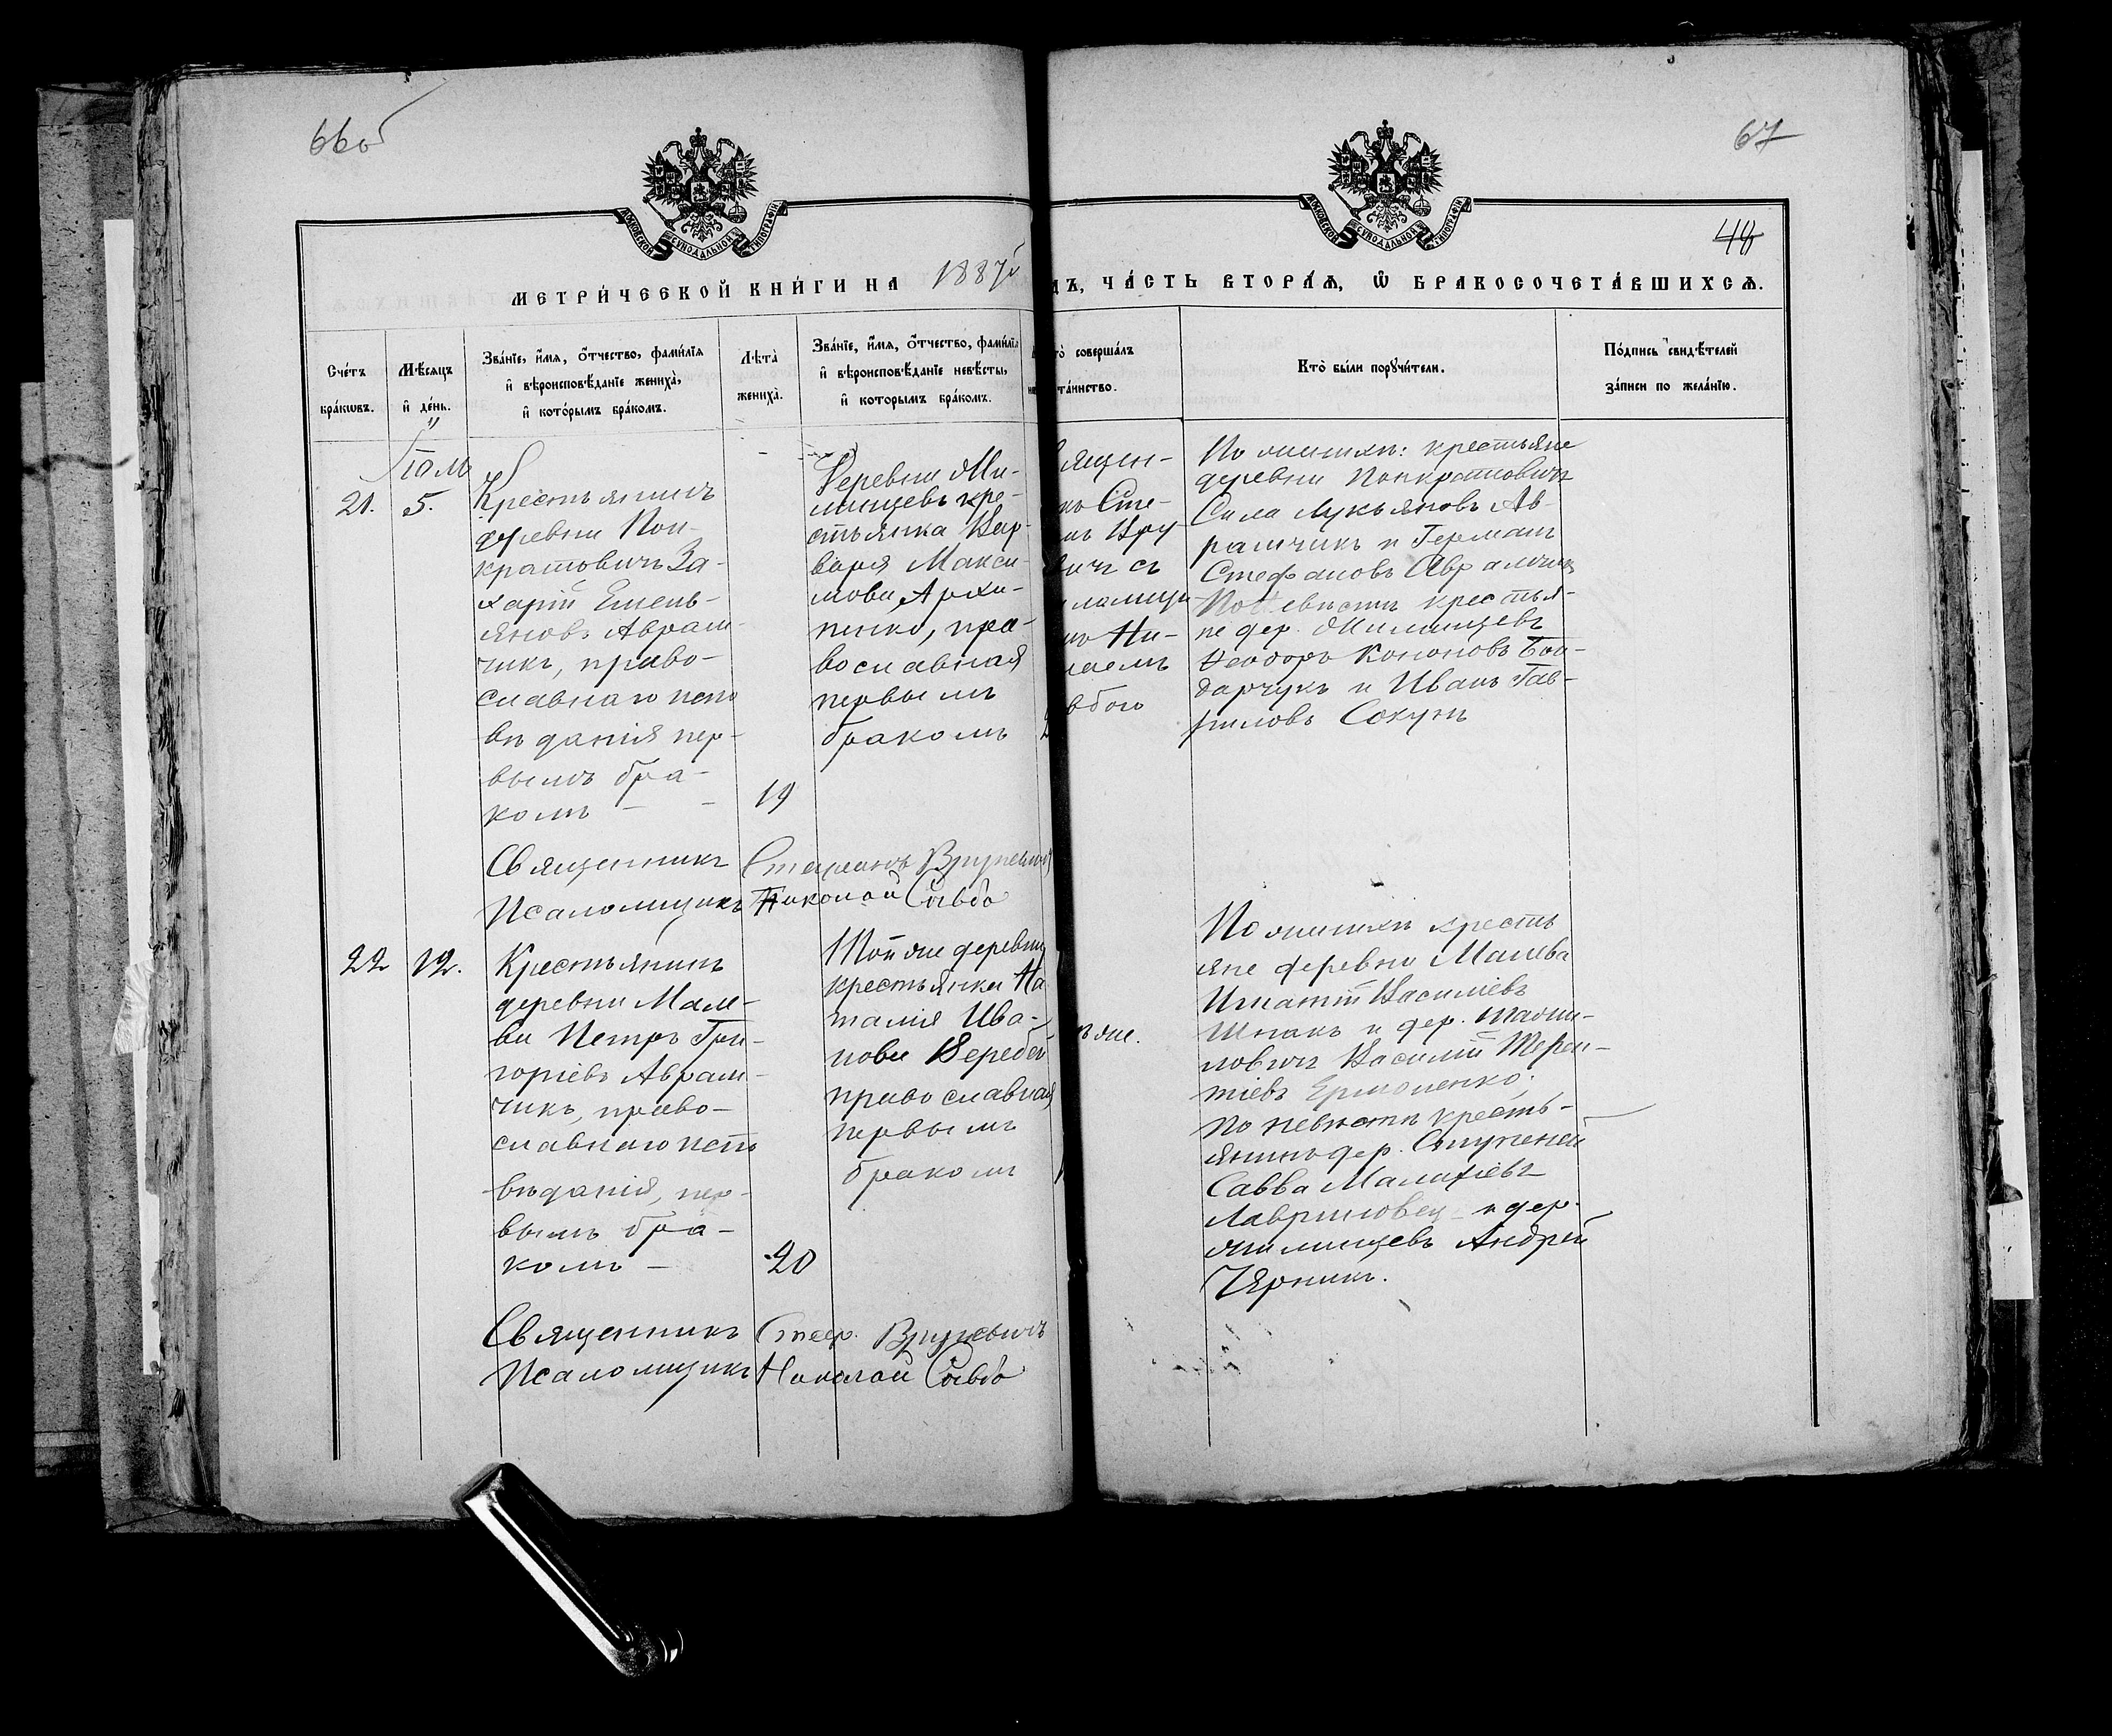 66об
67
МОСКОВСКОЙ СѴНОДАЛЬНОЙ ТИПОГРАФІИ
МОСКОВСКОЙ СѴНОДАЛЬНОЙ ТИПОГРАФІИ
48
МЕТРИ́ЧЕСКОЙ КНИ́ГИ НА 1887й
ДЪ, ЧА́СТЬ ВТОРА́Ѧ, Ѡ҆ БРАКОСОЧЕТА́ВШИХСѦ.
Сче́тъ
бра́кѡвъ.
Мѣ́сѧцъ
и҆ де́нь.
Зва́нїе, и҆́мѧ, ѻ҆́тчество, фами́лїѧ
и҆ вѣроисповѣ́данїе жениха̀,
и҆ кото́рымъ бра́комъ.
Лѣ́та
жениха̀.
Зва́нїе, и҆́мѧ, ѻ҆́тчество, фами́лїѧ
и҆ вѣроисповѣ́данїе невѣ́сты,
и҆ которымъ бра́комъ.
то̀ соверша́лъ
та́инство.
Кто̀ бы́ли порꙋчи́тели.
По́дпись свидѣ́телей
за́писи по жела́нїю.
21.
5.
Крестьянинъ
деревни Пон-
кратовичъ За-
харій Емель-
яновъ Аврам-
чикъ, право-
славнаго испо
вѣданія пер-
вымъ бра-
комъ –
19
Деревни Ми-
линцевъ кре-
стьянка Вар-
вара Макси-
мова Архи-
пенко, пра-
вославная
первымъ
бракомъ
ящен-
къ Сте-
нъ Вру
вичъ съ
ломщи
мъ Ни-
лаемъ
вбою
По женихѣ: крестьяне
деревни Понкратовичъ
Сила Лукьяновъ Ав-
рамчикъ и Германъ
Стефановъ Аврамчикъ
По невѣстѣ крестья-
не дер. Милинцевъ
Ѳеодоръ Кононовъ Бон-
дарчукъ и Иванъ Гав-
риловъ Сокунъ
Священникъ Стефанъ Вруцевичъ
Псаломщикъ Николай Савбо
22
12.
Крестьянинъ
деревни Мале-
ва Петръ Гри-
горіевъ Аврам-
чикъ, право-
славнаго испо
вѣданія, пер-
вымъ бра-
комъ –
20
Той же деревни
крестьянка На
талія Ива-
нова Веребей
православная
первымъ
бракомъ
ѣ же.
По женихѣ кресть
яне деревни Малева
Игнатій Василіевъ
Шпакъ и дер.
новичъ Василій Терен-
тіевъ Ермоленко;
по невѣстѣ кресть-
янинъ дер. Ступеней
Савва Малахіевъ
Лавриновец и дер.
Милинцевъ Андрей
Черникъ.
Священникъ Стеф. Вруцевичъ
Псаломщикъ Николай Савбо